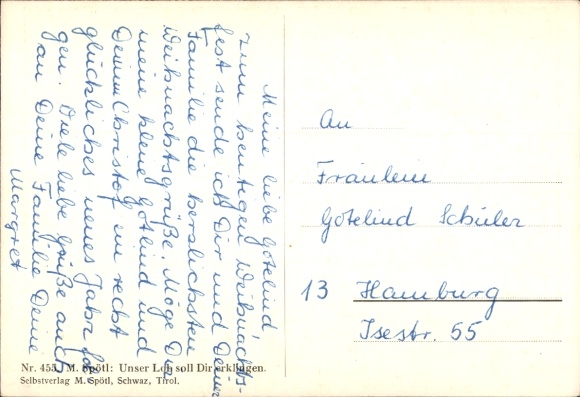 Meine liebe Gotelind
zum heutigen Weihnachts-
fest sende ich Dir und Deiner
Familie die herzlichsten
Weihnachtsgrüße. Möge Dir
meine kleine Gotelind und
Deinem Christof ein recht
glückliches neues Jahr fol-
gen. Viele liebe Grüße auch
an Deine Familie Deine
Margret
An
Fräulein
Gotelind Schüler
13 Hamburg
Isestr. 55
Nr. 455. M. Spötl: Unser Lob soll Dir erklingen.
Selbstverlag M. Spötl, Schwaz, Tirol.